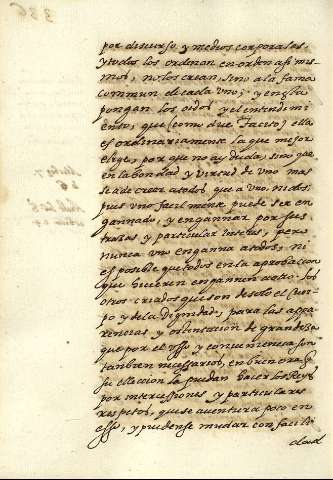 por discurso, y medios corporales,
y todos los ordinan en orden assi mis
mos, no los crean, sino a la fama
commun de cada uno; y en esta
pongan los oidos y el entendimi
ento, que (como dize Tacito) ella
es ordinariamente la que mejor
elige, porque no ay duda, sino que
en la bondad y virtud de uno mas
se a de creer a todos que a uno, y
pues uno facilmente puede ser en
gannado, y engannar por sus
trazas y particular interes, pero
nunca uno enganna a todos, ni
es posible que todos en la aprobacion
que hizieren engannen a otro. Los
otros criados que son de solo el Cuer
po y de la Dignidad, para las appa
riencias y ostentacion de grandeza
que por el uso y conveniencia son
tanbien necessarios, en buen ora
su eleccion la puedan hacer los Reyes
por intercessiones y particulares
respetos, que se aventura poco en
esso, y puedense mudar con facili
dad